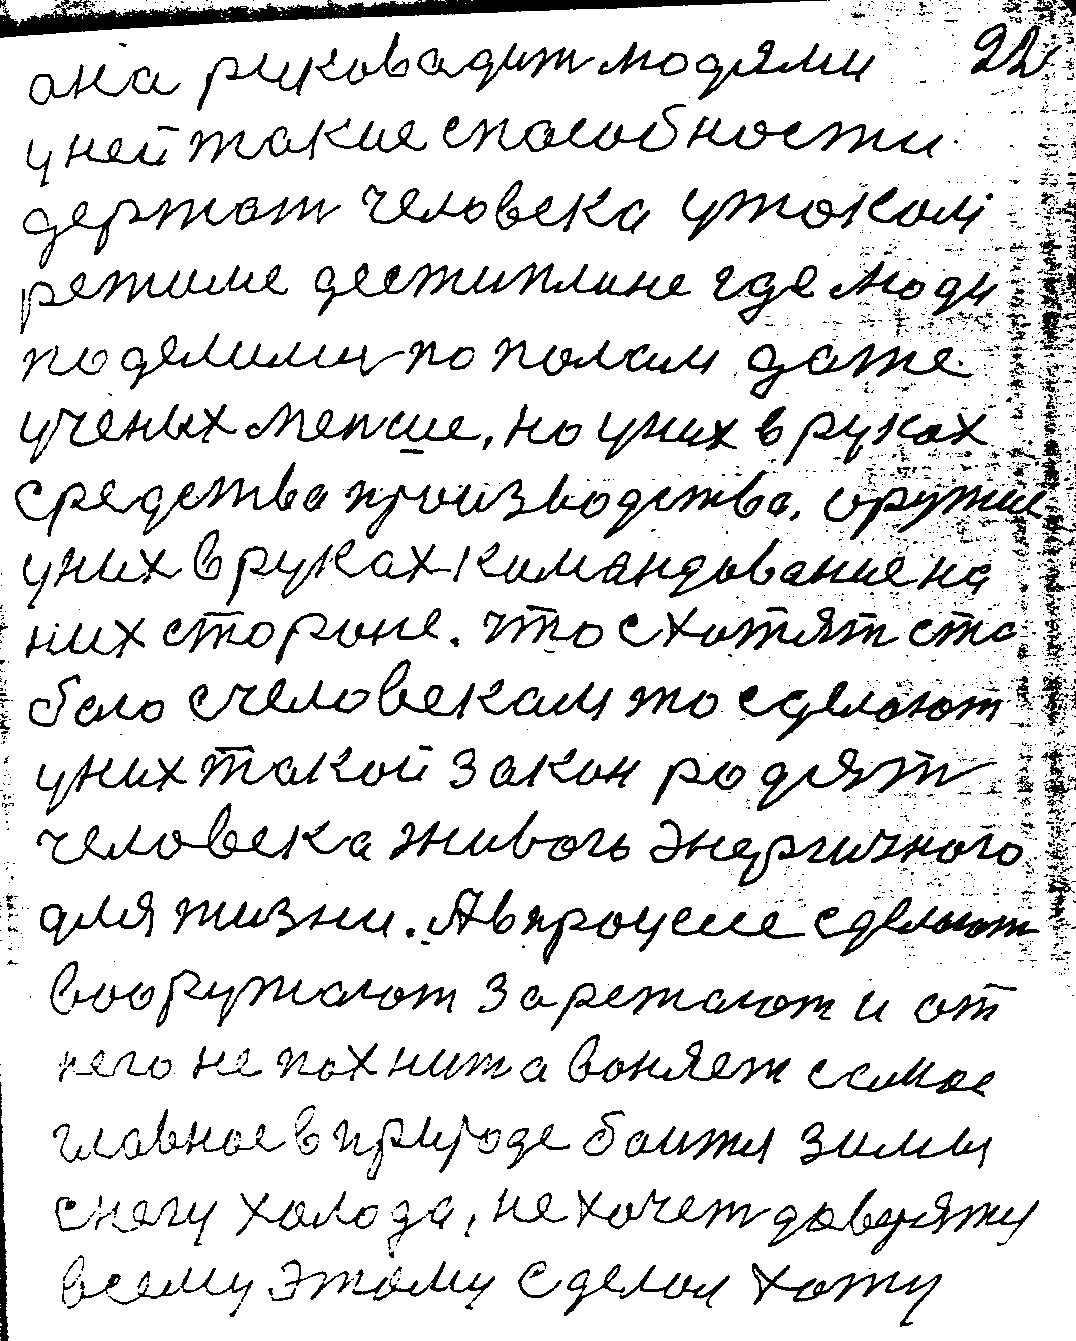 22
она руковадит людями
уней такие способности
держат человека утокомі
режиме дестиплине где люди
поделилиы по полам даже
ученых мепше, но у них в руках
средства производства. оружие
уних в руках командование на
них стороне. что с хотят сто
бало счеловекам то сделают
уних такой закон родят
человека живогь энергичного
для жизни. А впроцеие сделают
вооружают зарежают и от
него не пахнит а воняет самое
главное в природе баитя зимы
снегу холода, не хочет
всему этому сделал хожу